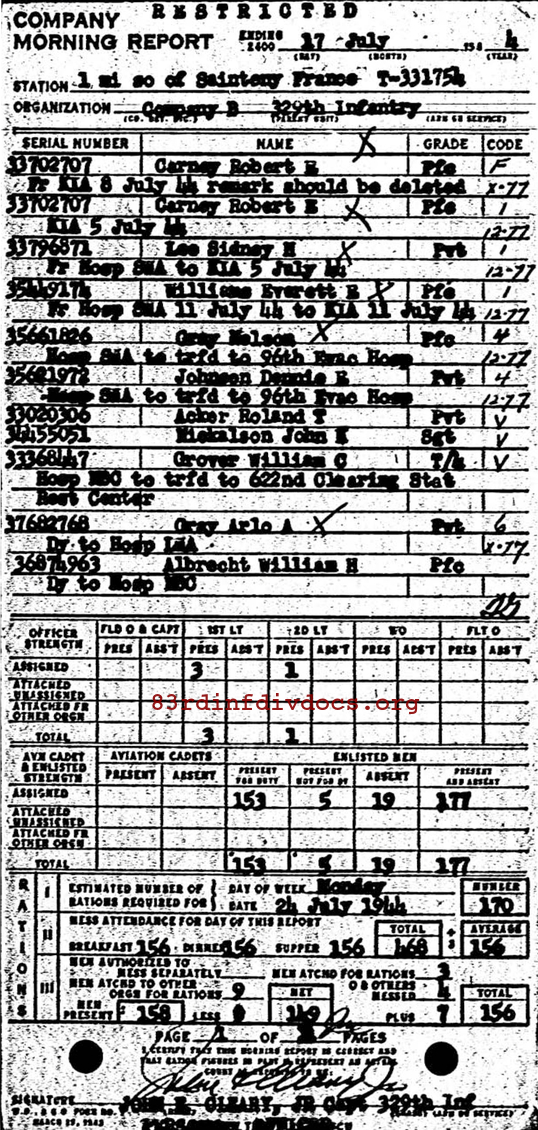 RESTRICTED
COMPANY
MORNING REPORT
ENDING 2400 17 July 194 4
(DAY) (MONTH) (YEAR)
STATION 1 mi so of Sainteny France T-331754
ORGANIZATION Company B 329th Infantry
SERIAL NUMBER NAME GRADE CODE
33702707 Carney Robert E Pfc F
Fr KIA 8 July 44 remark should be deleted X-77
33702707 Carney Robert E Pfc 1
KIA 5 July 44 12-77
33796871 Lee Sidney H Pvt 1
Fr Hosp SWA to KIA 5 July 44 12-77
35449174 Williams Everett E Pfc 1
Fr Hosp SWA 11 July 44 to KIA 11 July 44 12-77
35661826 Gray Nelson Pfc 4
Hosp SWA to trfd to 96th Evac Hosp 12-77
35681972 Johnson Dennie E Pvt 4
Hosp SWA to trfd to 96th Evac Hosp 12-77
33020306 Acker Roland T Pvt V
34455051 Mickalson John K Sgt V
33368447 Grover William C T/4 V
Hosp NBC to trfd to 622nd Clearing Stat
Rest Center
37682768 Gray Arlo A Pvt 6
Dy to Hosp LWA X-77
36874963 Albrecht William H Pfc
Dy to Hosp NBC
OFFICER STRENGTH FLD O & CAPT 1ST LT 2D LT WO FLT O
PRES ABS'T PRES ABS'T PRES ABS'T PRES ABS'T PRES ABS'T
ASSIGNED 3 1
ATTACHED UNASSIGNED
ATTACHED FR OTHER ORGN
83rdinfdivdocs.org
TOTAL 3 1
AVN CADET & ENLISTED STRENGTH AVIATION CADETS ENLISTED MEN
PRESENT ABSENT PRESENT FOR DUTY PRESENT NOT FOR DY ABSENT PRESENT AND ABSENT
ASSIGNED 153 5 19 177
ATTACHED UNASSIGNED
ATTACHED FR OTHER ORGN
TOTAL 153 5 19 177
RATIONS
I ESTIMATED NUMBER OF RATIONS REQUIRED FOR DAY OF WEEK Monday NUMBER
DATE 24 July 1944 170
II MESS ATTENDANCE FOR DAY OF THIS REPORT TOTAL ÷ 3 AVERAGE
BREAKFAST 156 DINNER 156 SUPPER 156 468 156
III MEN AUTHORIZED TO MESS SEPARATELY MEN ATCHD FOR RATIONS 3
MEN ATCHD TO OTHER ORGN FOR RATIONS 9 NET O & OTHERS MESSED 4 TOTAL
MEN PRESENT 158 LESS 9 149 PLUS 7 156
PAGE 1 OF PAGES
I CERTIFY THAT THIS MORNING REPORT IS CORRECT AND
THAT RATION FIGURES IN PART III REPRESENT AN ACTUAL
SIGNATURE JOHN E. CLEARY, JR Capt 329th Inf
W.D., A.G.O. FORM NO. 1
MARCH 15, 1943